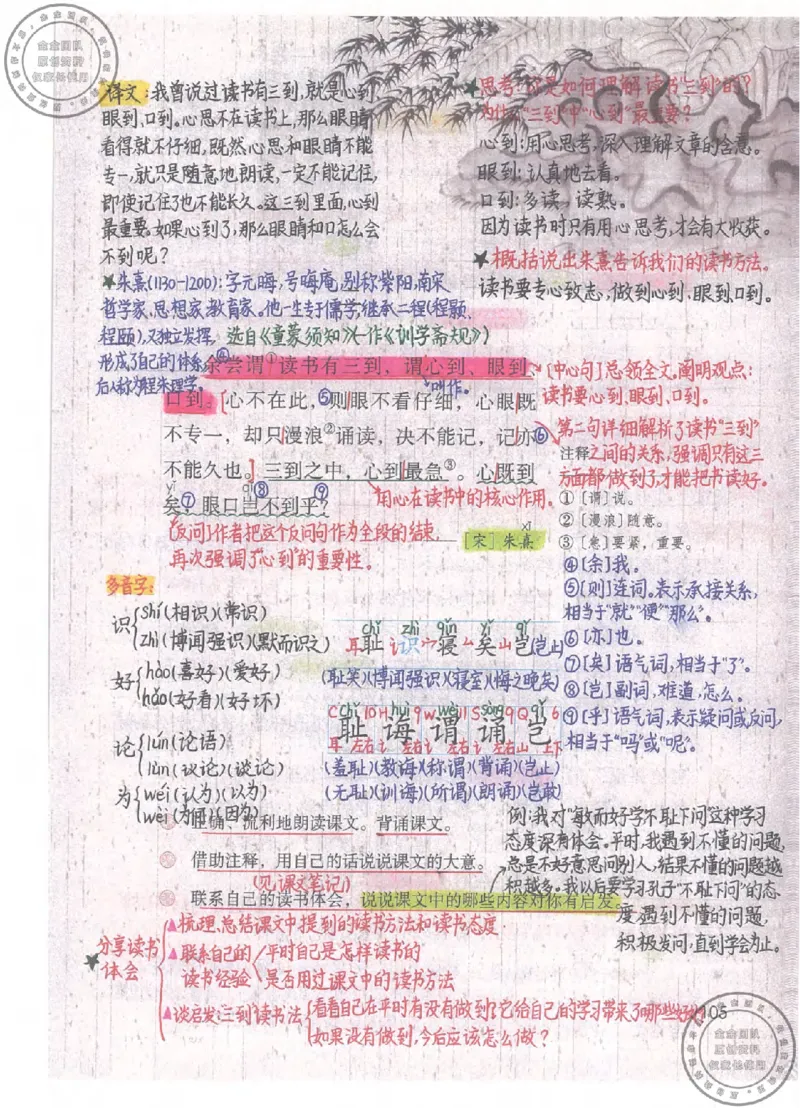 译文:我曾说过读书有三到,就是心到、
眼到、口到。心思不在读书上,那么眼睛
看得就不仔细,既然心思和眼睛不能
专一,就只是随意地朗读,一定不能记住,
即使记住了也不能长久。这三到里面,心到
最重要。如果心到了,那么眼睛和口怎么会
不到呢?
★朱熹(1130-1200):字元晦,号晦庵,别称紫阳,南宋
哲学家、思想家、教育家。他一生专于儒学,继承二程(程颢、
程颐),又独立发挥,
形成了自己的体系,
后人称为程朱理学。
选自《童蒙须知》(一作《训学斋规》)
★思考:你是如何理解读书“三到”的?
为什么“三到”中“心到”最重要?
心到:用心思考,深入理解文章的含意。
眼到:认真地去看。
口到:多读、读熟。
因为读书时只有用心思考,才会有大收获。
★概括说出朱熹告诉我们的读书方法。
读书要专心致志,做到心到、眼到、口到。
④余尝谓①读书有三到,谓心到、眼到、
叫作。
口到。心不在此,⑤则眼不看仔细,心眼既
不专一,却只漫浪②诵读,决不能记,记亦⑥
不能久也。三到之中,心到最急③。心既到
yǐ qǐ
矣⑦,眼口岂⑧不到乎⑨?
用心在读书中的核心作用。
[反问]作者把这个反问句作为全段的结束,
再次强调了“心到”的重要性。
xī
[宋]朱熹
[中心句]总领全文。阐明观点:
读书要心到、眼到、口到。
第二句详细解析了读书“三到”
之间的关系,强调只有这三
方面都做到了,才能把书读好。
注释
①[谓]说。
②[漫浪]随意。
③[急]要紧,重要。
④[余]我。
⑤[则]连词。表示承接关系,
相当于“就”“便”“那么”。
⑥[亦]也。
⑦[矣]语气词,相当于“了”。
⑧[岂]副词,难道,怎么。
⑨[乎]语气词,表示疑问或反问,
相当于“吗”或“呢”。
多音字:
识 shí(相识)(常识)
zhì(博闻强识)(默而识之)
好 hào(喜好)(爱好)
hǎo(好看)(好坏)
论 lún(论语)
lùn(议论)(谈论)
为 wéi(认为)(以为)
wèi(为何)(因为)
chǐ zhì qǐn yǐ qǐ
耳耻 讠识 宀寝 厶矣 山岂(岂止)
(耻笑)(博闻强识)(寝室)(悔之晚矣)
chǐ 10 huì 9 wèi 11 sòng 9 qǐ 6
耻 诲 谓 诵 岂
耳 左右 讠 左右 讠 左右 讠 左右 山 上下
(羞耻)(教诲)(称谓)(背诵)(岂止)
(无耻)(训诲)(所谓)(朗诵)(岂敢)
正确、流利地朗读课文。背诵课文。
借助注释,用自己的话说说课文的大意。
(见课文笔记)
联系自己的读书体会,说说课文中的哪些内容对你有启发。
例:我对“敏而好学,不耻下问”这种学习
态度深有体会。平时,我遇到不懂的问题,
总是不好意思问别人,结果不懂的问题越
积越多。我以后要学习孔子“不耻下问”的态
度,遇到不懂的问题,
积极发问,直到学会为止。
★分享读书
体会
▲梳理、总结课文中提到的读书方法和读书态度
▲联系自己的
读书经验
平时自己是怎样读书的
是否用过课文中的读书方法
▲谈启发:“三到”读书法
看看自己在平时有没有做到?它给自己的学习带来了哪些好处?
如果没有做到,今后应该怎么做?
105